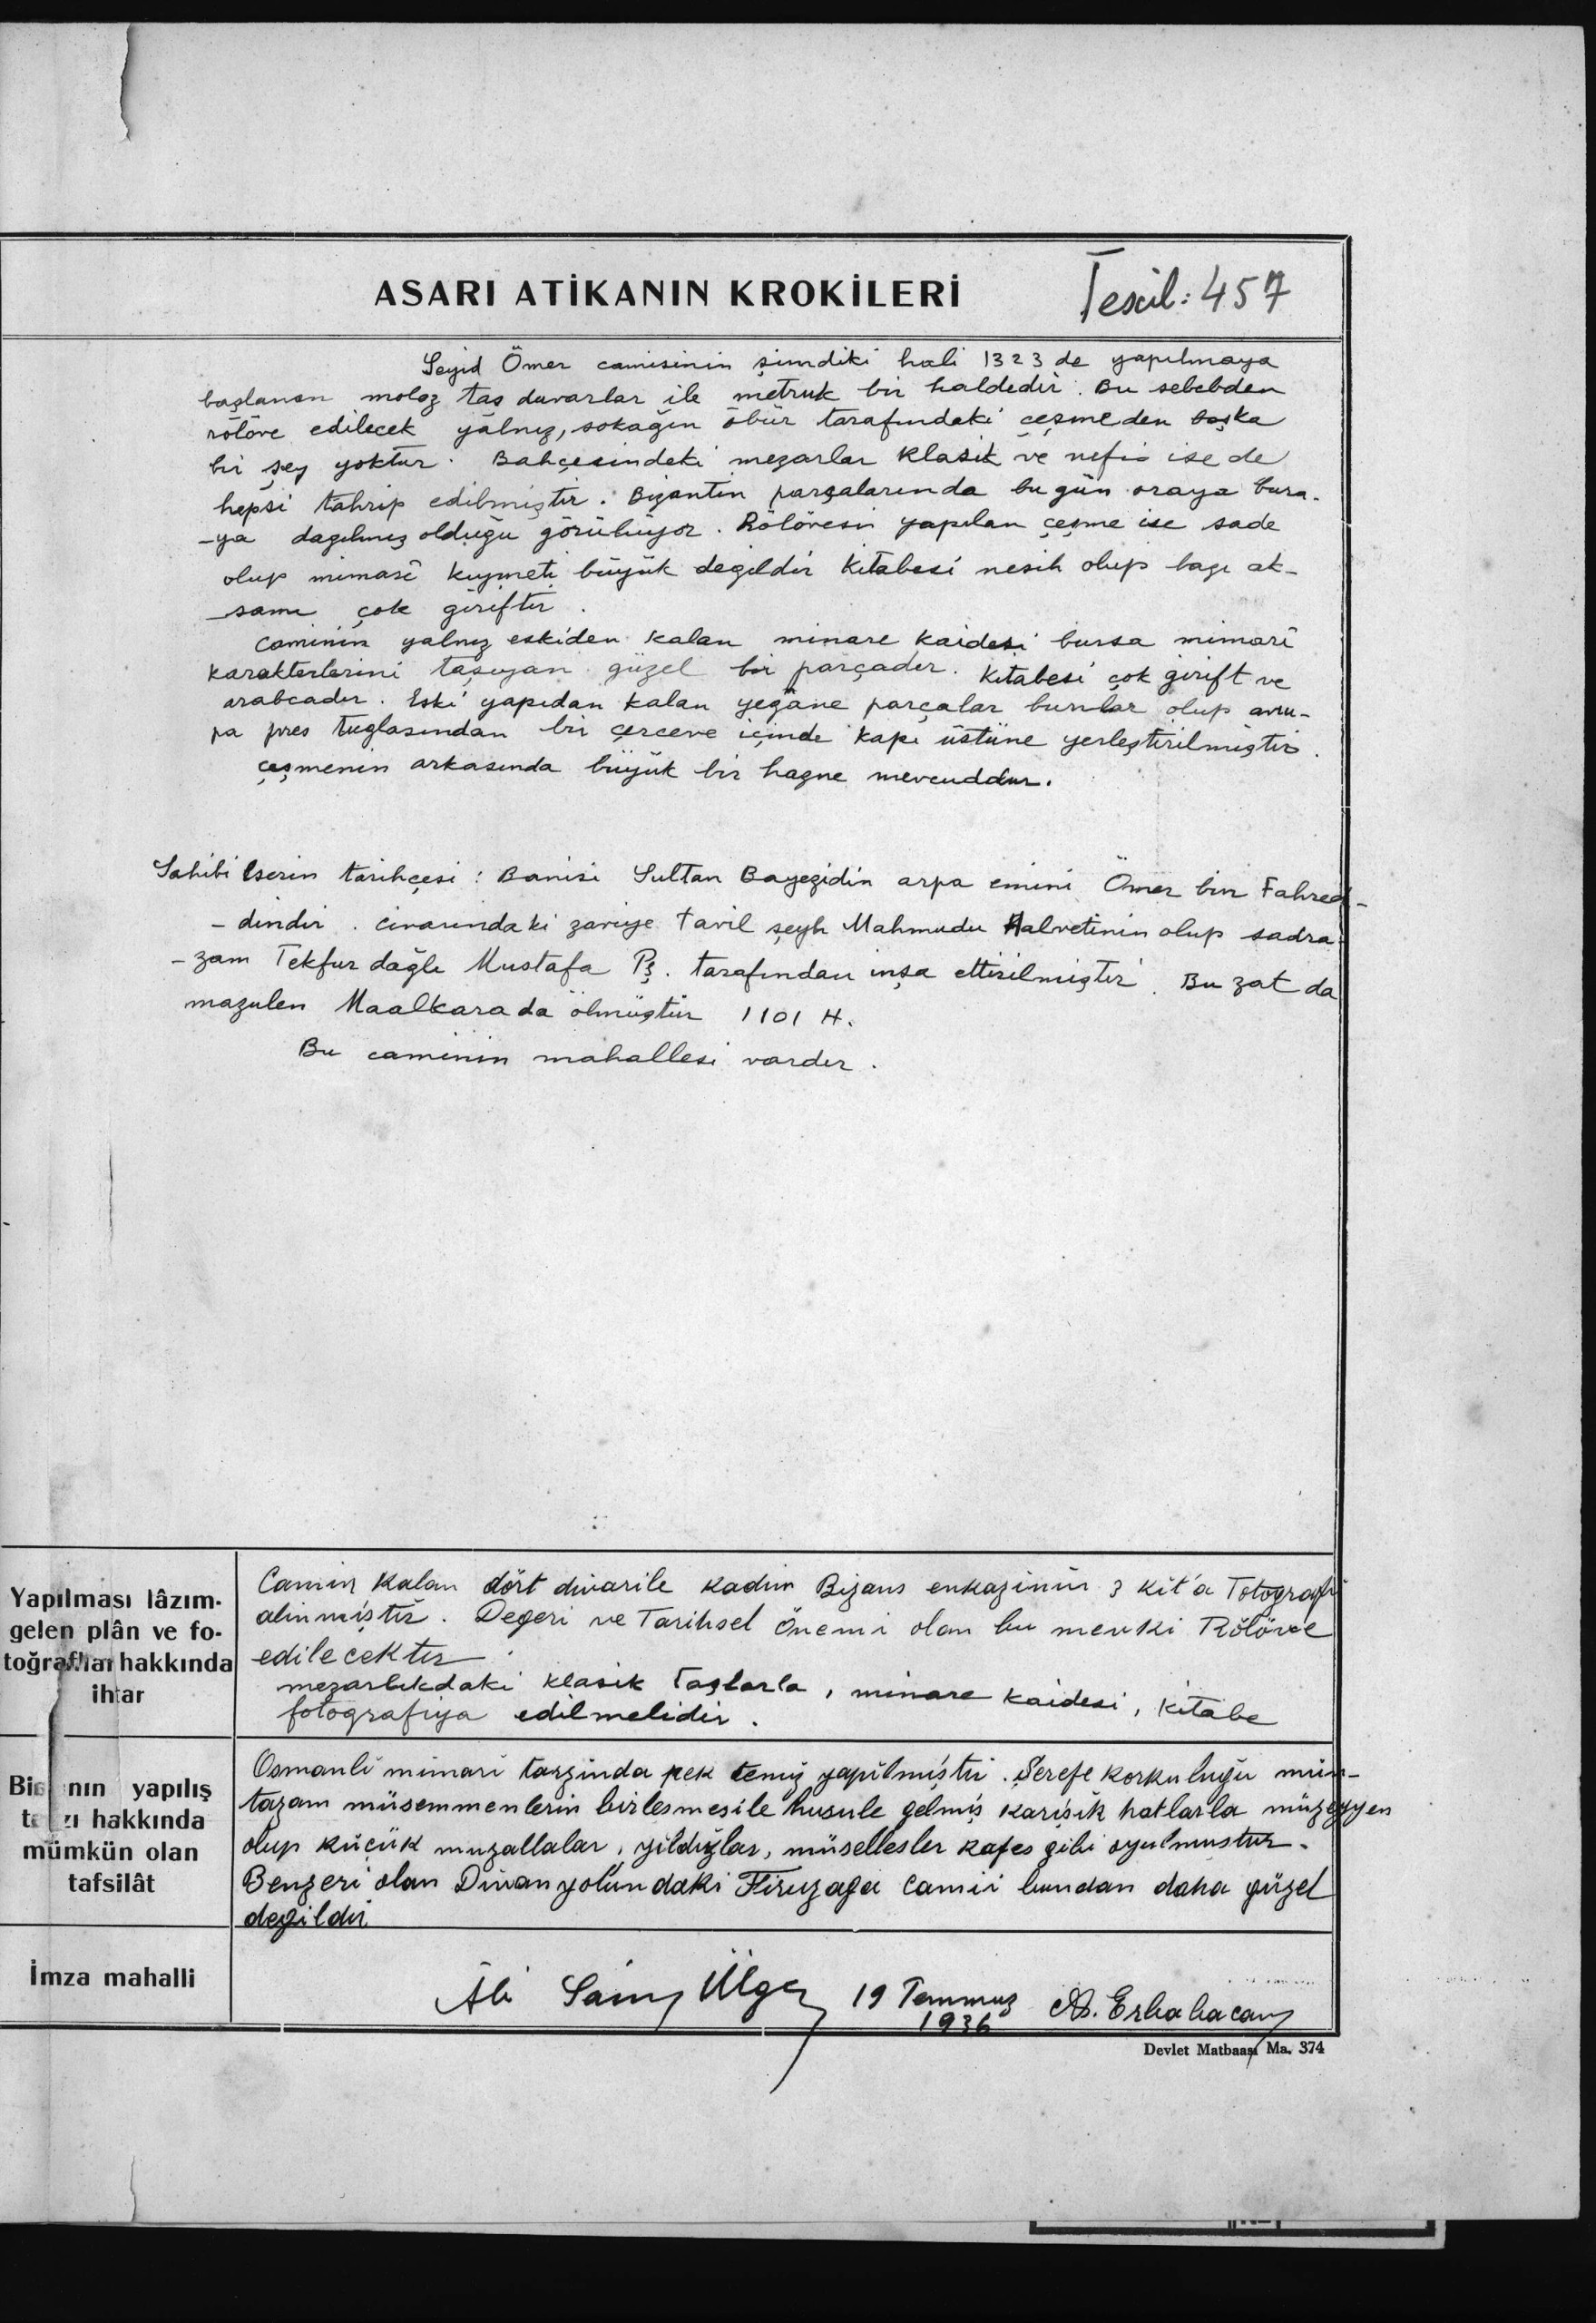 ASARI ATİKANIN KROKİLERİ
Tescil: 457
Seyid Ömer camisinin şimdiki hali 1323 de yapılmaya
başlanan moloz taş duvarlar ile metruk bir haldedir. Bu sebebden
rölöve edilecek yalnız, sokağın öbür tarafındaki çeşmeden başka
bir şey yoktur. Bahçesindeki mezarlar klasik ve nefis ise de
hepsi tahrip edilmiştir. Bizantin parçalarında bugün oraya bura-
-ya dağılmış olduğu görülüyor. Rölövesi yapılan çeşme ise sade
olup mimarî kıymeti büyük değildir kitabesi nesih olup bazı ak-
-samı çok giriftir.
Caminin yalnız eskiden kalan minare kaidesi bursa mimarî
karakterlerini taşıyan güzel bir parçadır. Kitabesi çok girift ve
arabcadır. Eski yapıdan kalan yegâne parçalar bunlar olup avru-
pa pres tuğlasından bir çerçeve içinde kapı üstüne yerleştirilmiştir.
çeşmenin arkasında büyük bir hazne mevcuddur.
Sahibi Eserin tarihçesi : Banisi Sultan Bayezidin arpa emini Ömer bin Fahred-
-dindir. civarındaki zaviye tavil şeyh Mahmudu Halvetinin olup sadra-
-zam Tekfur dağlı Mustafa Pş. tarafından inşa ettirilmiştir. Bu zat da
mazulen Maalkarada ölmüştür 1101 H.
Bu caminin mahallesi vardır.
Yapılması lâzım-
gelen plân ve fo-
toğraflar hakkında
ihtar
Camiin kalan dört divarile kadim Bizans enkazinin 3 kit'a Fotografi
alinmiştir. Degeri ve Tarihsel Önemi olan bu mevki Rölöve
edilecektir.
mezarlıkdaki klasik taşlarla, minare kaidesi, kitabe
fotografiya edilmelidir.
Binanın yapılış
tarzı hakkında
mümkün olan
tafsilât
Osmanli mimari tarzinda pek temiz yapilmiştir. Şerefe korkuluğu mün-
tazam müsemmenlerin birlesmesile husule gelmiş karişik hatlarla müzeyyen
olup küçük muzallalar, yildizlar, müsellesler kafes gibi oyulmustur.
Benzeri olan Divanyolundaki Firuzaga Camii bundan daha güzel
degildir
İmza mahalli
Ali Saim Ülgen 19 Temmuz
1936
A. Erbabacan
Devlet Matbaası Ma. 374